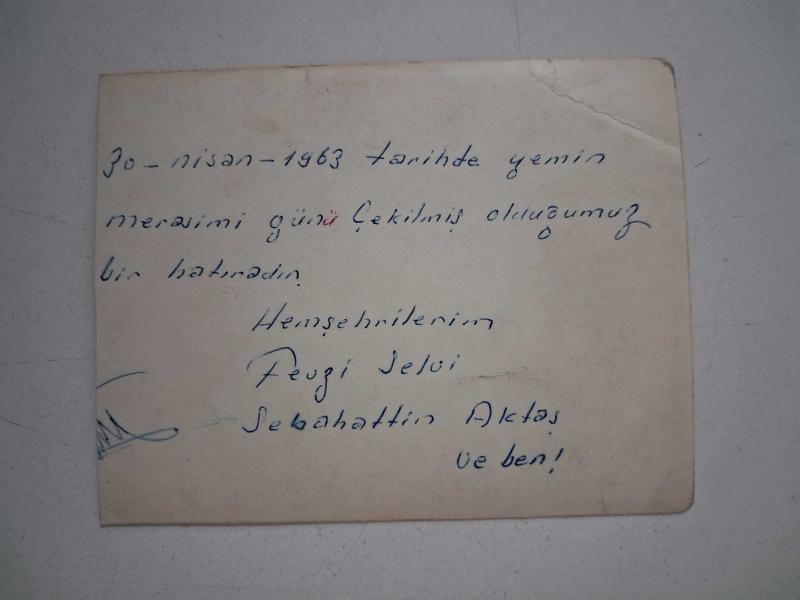 30 - nisan - 1963 tarihde yemin
merasimi günü Çekilmiş olduğumuz
bir hatıradır.
Hemşehrilerim
Fevzi Selvi
Sebahattin Aktaş
ve ben!